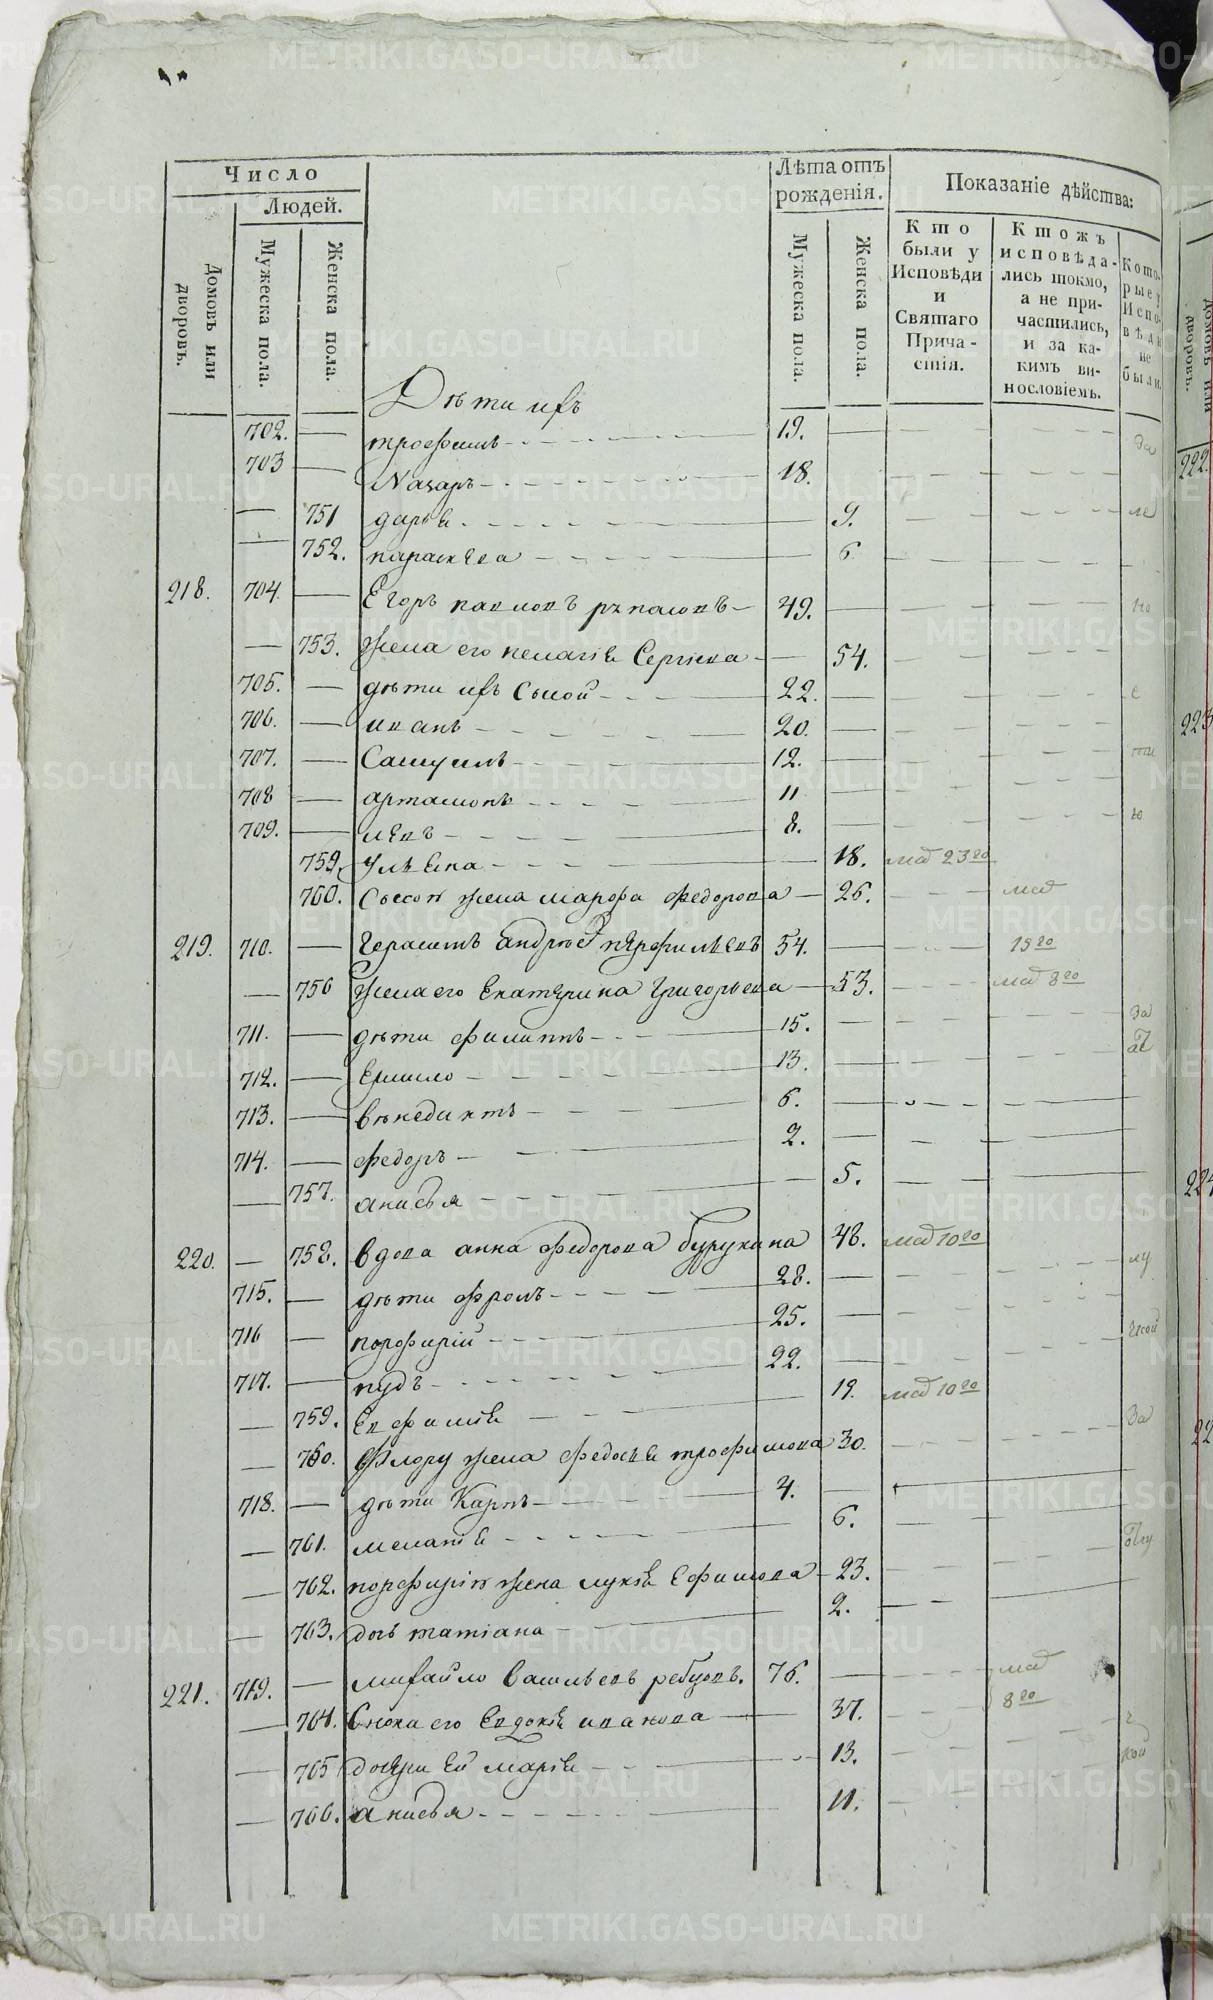 Число
Людей.
Домовъ или дворовъ.
Мужеска пола.
Женска пола.
Лѣта отъ рожденія.
Мужеска пола.
Женска пола.
Показаніе дѣйства:
Кто были у Исповѣди и Святаго Причастія.
Ктожъ исповѣдались токмо, а не причастились, и за какимъ винословіемъ.
Которые у Исповѣди не были.
Дѣти ихъ
702. трофимъ 19. За
703 Назаръ 18.
751 дарья 9. ле
752. параскева 6
218. 704. Егоръ павловъ 49. но
753. жена его пелагія Сергѣева 54.
705. дѣти ихъ Сысой 22. с
706. иванъ 20.
707. Самуилъ 12. ти
708 артамонъ 11
709. левъ 8. ю
759. Ульяна 18. ма 23го
760. Сысоя жена марфа федорова 26. ма
219. 710. Герасимъ андрѣевъ перфильевъ 54. 15го
756 Жена его Екатерина Григорьева 53. ма 8го
711. дѣти филиппъ 15. За
712. Ермило 13.
713. Венедиктъ 6.
714. федоръ 2.
757. анисья 5.
220. 758. вдова анна федорова бурухина 48. ма 10го
715. дѣти Фролъ 28. лу
716 порфирій 25.
717. пудъ 22.
759. Евфимія 19. ма 10го
760. Флору жена федосья трофимова 30. За
718. дѣти Карпъ 4.
761. меланія 6.
762. порфирія жена лукія Ефимова 23.
763. дочь татіана 2.
221. 719. михайло Васильевъ ребцовъ. 76. ма 8го
764. Сноха его Евдокія иванова 37.
765 дочери Ея марія 13. кой
766. анисья 11.
222.
223
224